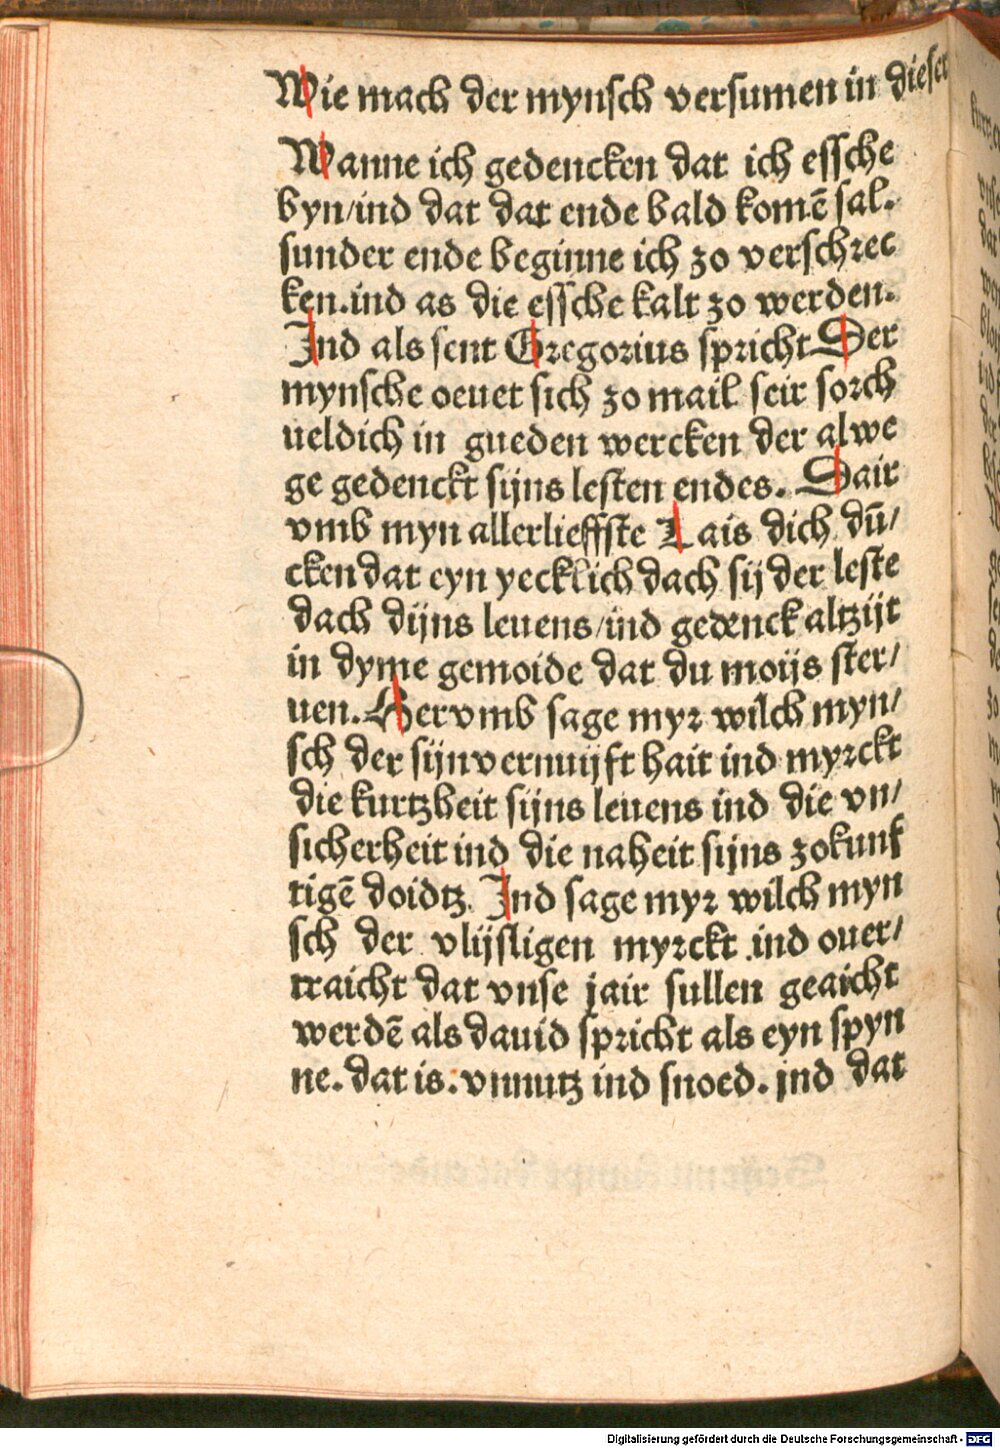 Wie mach der mynsch versumen in dieser
Wanne ich gedencken dat ich essche
byn/ind dat dat ende bald komē sal.
sunder ende beginne ich zo verschrec
ken.ind as die essche kalt zo werden.
Ind als sent Gregorius spricht Der
mynsche oeuet sich zo mail seir sorch
ueldich in gueden wercken der alwe
ge gedenckt sijns lesten endes. Dair
vmb myn allerlieffste Lais dich dū/
cken dat eyn yecklich dach sij der leste
dach dijns leuens/ind gedenck altzijt
in dyme gemoide dat du moijs ster/
uen. Hervmb sage myr wilch myn/
sch der sijn vernuijft hait ind myrckt
die kurtzheit sijns leuens ind die vn/
sicherheit ind die naheit sijns zokunf
tigē doidtz. Ind sage myr wilch myn
sch der vlijsligen myrckt .ind ouer/
traicht dat vnse jair sullen geaicht
werdē als dauid spricht als eyn spyn
ne. dat is. vnnutz ind snoed. jnd dat
Digitalisierung gefördert durch die Deutsche Forschungsgemeinschaft - DFG